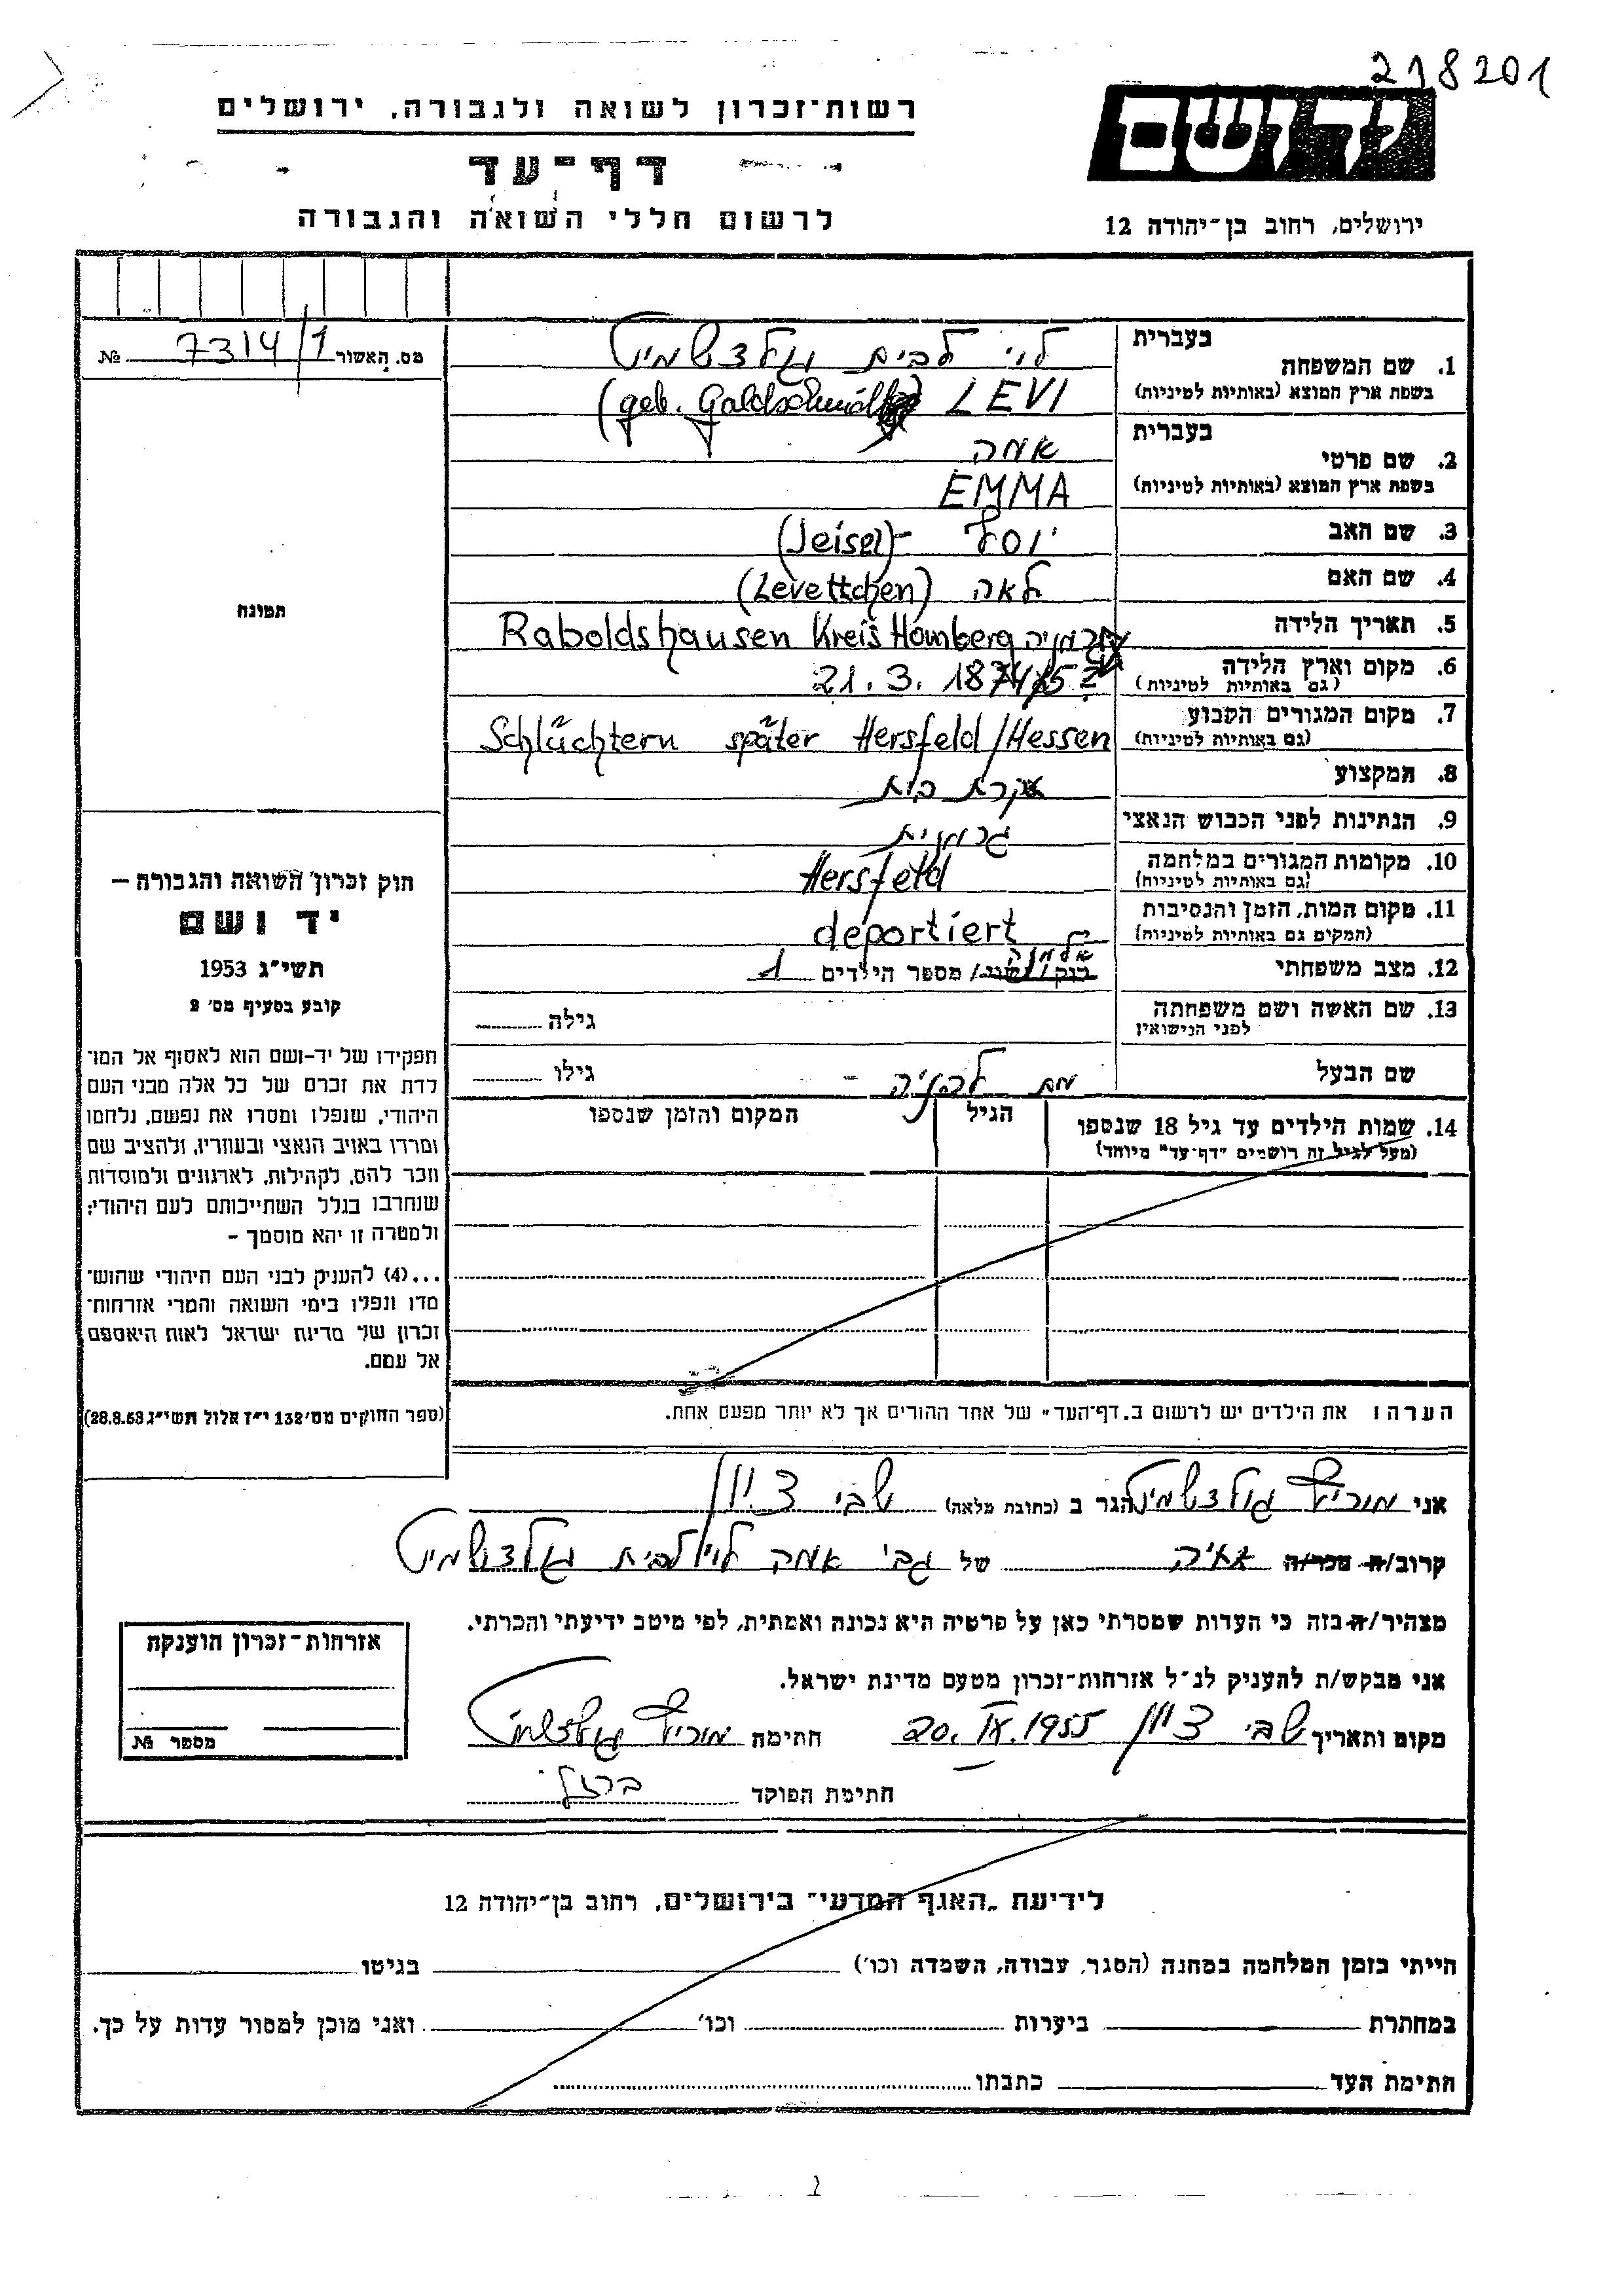 218201
רשות־זכרון לשואה ולגבורה, ירושלים
יד ושם
דף־עד
לרשום חללי השואה והגבורה
ירושלים, רחוב בן־יהודה 12
מס. האשור 7314/1 №
בעברית
לוי לבית גולדשמידט
1. שם המשפחה
בשפת ארץ המוצא (באותיות לטיניות)
LEVI (geb. Goldschmidt)
בעברית
אמה
2. שם פרטי
בשפת ארץ המוצא (באותיות לטיניות)
EMMA
3. שם האב יוסף - (Jeisel)
4. שם האם לאה (Levettchen)
5. תאריך הלידה
Raboldshausen Kreis Homberg גרמניה
6. מקום וארץ הלידה
(גם באותיות לטיניות)
21. 3. 1874/5?
7. מקום המגורים הקבוע
(גם באותיות לטיניות)
Schlüchtern später Hersfeld/Hessen
8. המקצוע עקרת בית
9. הנתינות לפני הכבוש הנאצי גרמנית
10. מקומות המגורים במלחמה
(גם באותיות לטיניות)
Hersfeld
11. מקום המות, הזמן והנסיבות
(המקים גם באותיות לטיניות)
deportiert
אלמנה
12. מצב משפחתי רוק/נשוי/ מספר הילדים 1
13. שם האשה ושם משפחתה
לפני הנישואין
גילה
שם הבעל מת לפניה - גילו
14. שמות הילדים עד גיל 18 שנספו
(מעל לגיל זה רושמים "דף־עד" מיוחד)
הגיל
המקום והזמן שנספו
הערה: את הילדים יש לרשום ב"דף־העד" של אחד ההורים אך לא יותר מפעם אחת.
תמונה
חוק זכרון השואה והגבורה –
יד ושם
תשי״ג 1953
קובע בסעיף מס׳ 2
תפקידו של יד־ושם הוא לאסוף אל המו־
לדת את זכרם של כל אלה מבני העם
היהודי, שנפלו ומסרו את נפשם, נלחמו
ומרדו באויב הנאצי ובעוזריו, ולהציב שם
וזכר להם, לקהילות, לארגונים ולמוסדות
שנחרבו בגלל השתייכותם לעם היהודי;
ולמטרה זו יהא מוסמך –
...(4) להעניק לבני העם היהודי שהוש־
מדו ונפלו בימי השואה והמרי אזרחות־
זכרון של מדינת ישראל לאות היאספם
אל עמם.
(ספר החוקים מס׳ 132 י״ז אלול תשי״ג 28.8.53)
אני מוריץ גולדשמידט הגר ב (כתובת מלאה) שבי ציון
קרוב/ה מכר/ה אחיה של גב׳ אמה לוי לבית גולדשמידט
מצהיר/ה בזה כי העדות שמסרתי כאן על פרטיה היא נכונה ואמתית, לפי מיטב ידיעתי והכרתי.
אני מבקש/ת להעניק לנ״ל אזרחות־זכרון מטעם מדינת ישראל.
מקום ותאריך שבי ציון 20. IX. 1955 חתימה מוריץ גולדשמידט
חתימת הפוקד ברזל
אזרחות־זכרון הוענקה
מספר №
לידיעת "האגף המדעי" בירושלים, רחוב בן־יהודה 12
הייתי בזמן המלחמה במחנה (הסגר, עבודה, השמדה וכו׳) בגיטו
במחתרת ביערות וכו׳ ואני מוכן למסור עדות על כך.
חתימת העד כתבתו